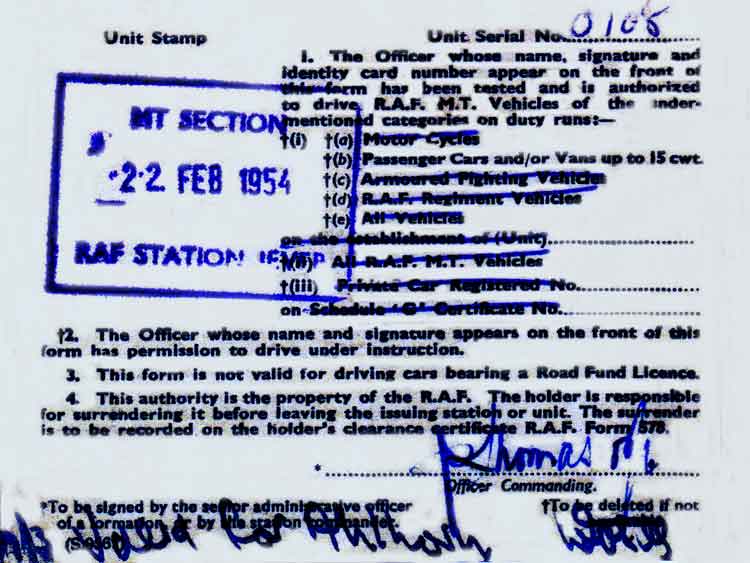 Unit Stamp
Unit Serial No. 0108
MT SECTION
22 FEB 1954
RAF STATION JEVER
1. The Officer whose name, signature and
identity card number appear on the front of
this form has been tested and is authorized
to drive R.A.F. M.T. Vehicles of the under-
mentioned categories on duty runs:—
†(i) †(a) Motor Cycles
†(b) Passenger Cars and/or Vans up to 15 cwt.
†(c) Armoured Fighting Vehicles
†(d) R.A.F. Regiment Vehicles
†(e) All Vehicles
on the establishment of (Unit)
†(ii) All R.A.F. M.T. Vehicles
†(iii) Private Car Registered No.
on Schedule 'G' Certificate No.
†2. The Officer whose name and signature appears on the front of this
form has permission to drive under instruction.
3. This form is not valid for driving cars bearing a Road Fund Licence.
4. This authority is the property of the R.A.F. The holder is responsible
for surrendering it before leaving the issuing station or unit. The surrender
is to be recorded on the holder's clearance certificate R.A.F. Form 578.
Thomas
*
Officer Commanding.
*To be signed by the senior administrative officer
of a formation, or by the station commander.
†To be deleted if not
valid for